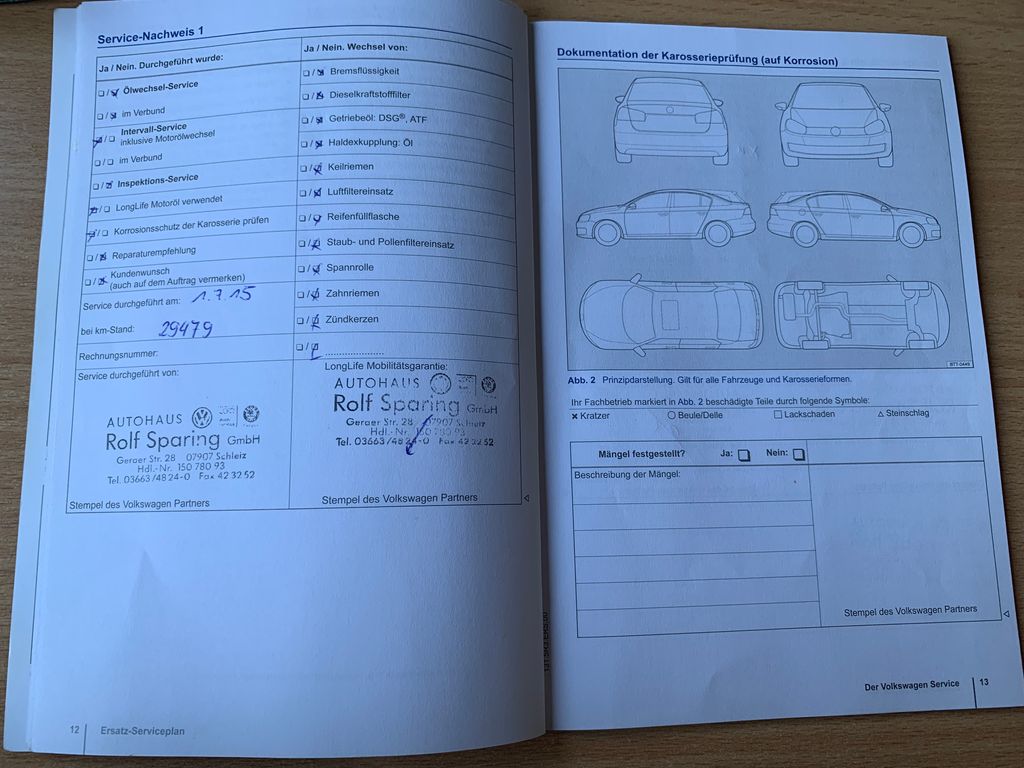 Service-Nachweis 1
Ja / Nein. Durchgeführt wurde:
Ölwechsel-Service
im Verbund
Intervall-Service
inklusive Motorölwechsel
im Verbund
Inspektions-Service
LongLife Motoröl verwendet
Korrosionsschutz der Karosserie prüfen
Reparaturempfehlung
Kundenwunsch
(auch auf dem Auftrag vermerken)
Service durchgeführt am: 1.7.15
bei km-Stand: 29479
Rechnungsnummer:
Service durchgeführt von:
AUTOHAUS
Rolf Sparing GmbH
Geraer Str. 28 07907 Schleiz
Hdl.-Nr. 150 780 93
Tel. 03663/48 24-0 Fax 42 32 52
Stempel des Volkswagen Partners
Ja / Nein. Wechsel von:
Bremsflüssigkeit
Dieselkraftstofffilter
Getriebeöl: DSG®, ATF
Haldexkupplung: Öl
Keilriemen
Luftfiltereinsatz
Reifenfüllflasche
Staub- und Pollenfiltereinsatz
Spannrolle
Zahnriemen
Zündkerzen
....................
LongLife Mobilitätsgarantie:
AUTOHAUS
Rolf Sparing GmbH
Geraer Str. 28 07907 Schleiz
Hdl.-Nr. 150 780 93
Tel. 03663/48 24-0 Fax 42 32 52
Stempel des Volkswagen Partners
12 Ersatz-Serviceplan
Dokumentation der Karosserieprüfung (auf Korrosion)
BT7-0449
Abb. 2 Prinzipdarstellung. Gilt für alle Fahrzeuge und Karosserieformen.
Ihr Fachbetrieb markiert in Abb. 2 beschädigte Teile durch folgende Symbole:
Kratzer Beule/Delle Lackschaden Steinschlag
Mängel festgestellt? Ja: Nein:
Beschreibung der Mängel:
Stempel des Volkswagen Partners
Der Volkswagen Service 13